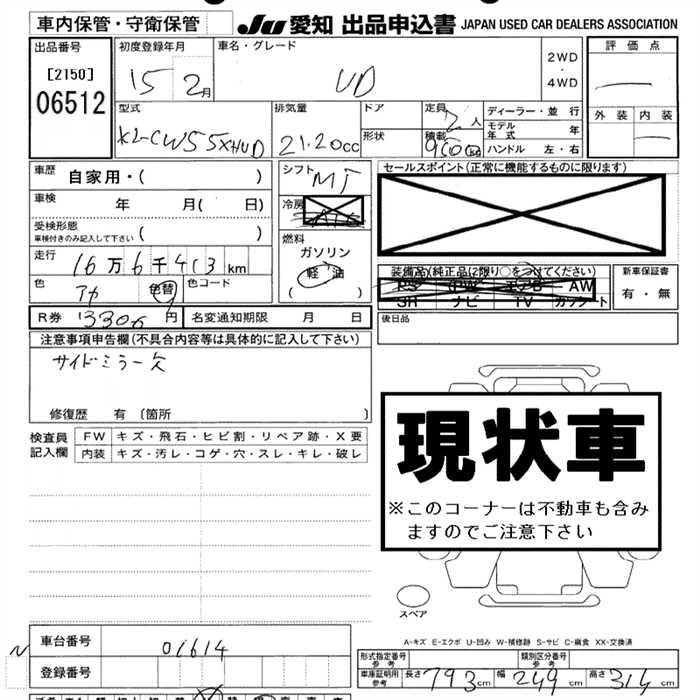 車内保管・守衛保管
JU 愛知 出品申込書 JAPAN USED CAR DEALERS ASSOCIATION
出品番号
[2150]
06512
初度登録年月
15 2月
車名・グレード
UD
2WD
・
4WD
評価点
外装 内装
型式
KL-CW55XHUD
排気量
21.20cc
ドア
形状
定員
2人
積載
9500kg
ディーラー・並行
モデル年式 年
ハンドル 左・右
車歴 自家用・( )
車検 年 月( 日)
受検形態
車検付きのみ記入して下さい ( )
走行 16万6千413km
色 アカ 色替 色コード
R券 円 名変通知期限 月 日
シフト MT
冷房
燃料
ガソリン
軽油
( )
セールスポイント(正常に機能するものに限ります)
装備品(純正品に限り○をつけてください)
PS PW エアB AW
SR ナビ TV カワシート
新車保証書
有・無
後日品
注意事項申告欄(不具合内容等は具体的に記入して下さい)
サイドミラー欠
修復歴 有〔箇所 〕
検査員記入欄
FW キズ・飛石・ヒビ割・リペア跡・X要
内装 キズ・汚レ・コゲ・穴・スレ・キレ・破レ
現状車
※このコーナーは不動車も含み
ますのでご注意下さい
スペア
A-キズ E-エクボ U-凹み W-補修跡 S-サビ C-腐食 XX-交換済
車台番号 01614
登録番号
形式指定番号 参考
類別区分番号 参考
車庫証明用 参考 長さ 793cm 幅 249cm 高さ 314cm